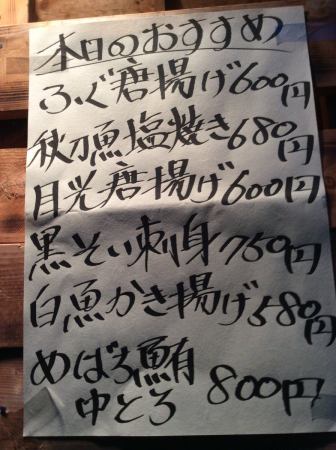 本日のおすすめ
ふぐ唐揚げ600円
秋刀魚塩焼き680円
月光唐揚げ600円
黒そい刺身750円
白魚かき揚げ580円
めばち鮪
中とろ 800円